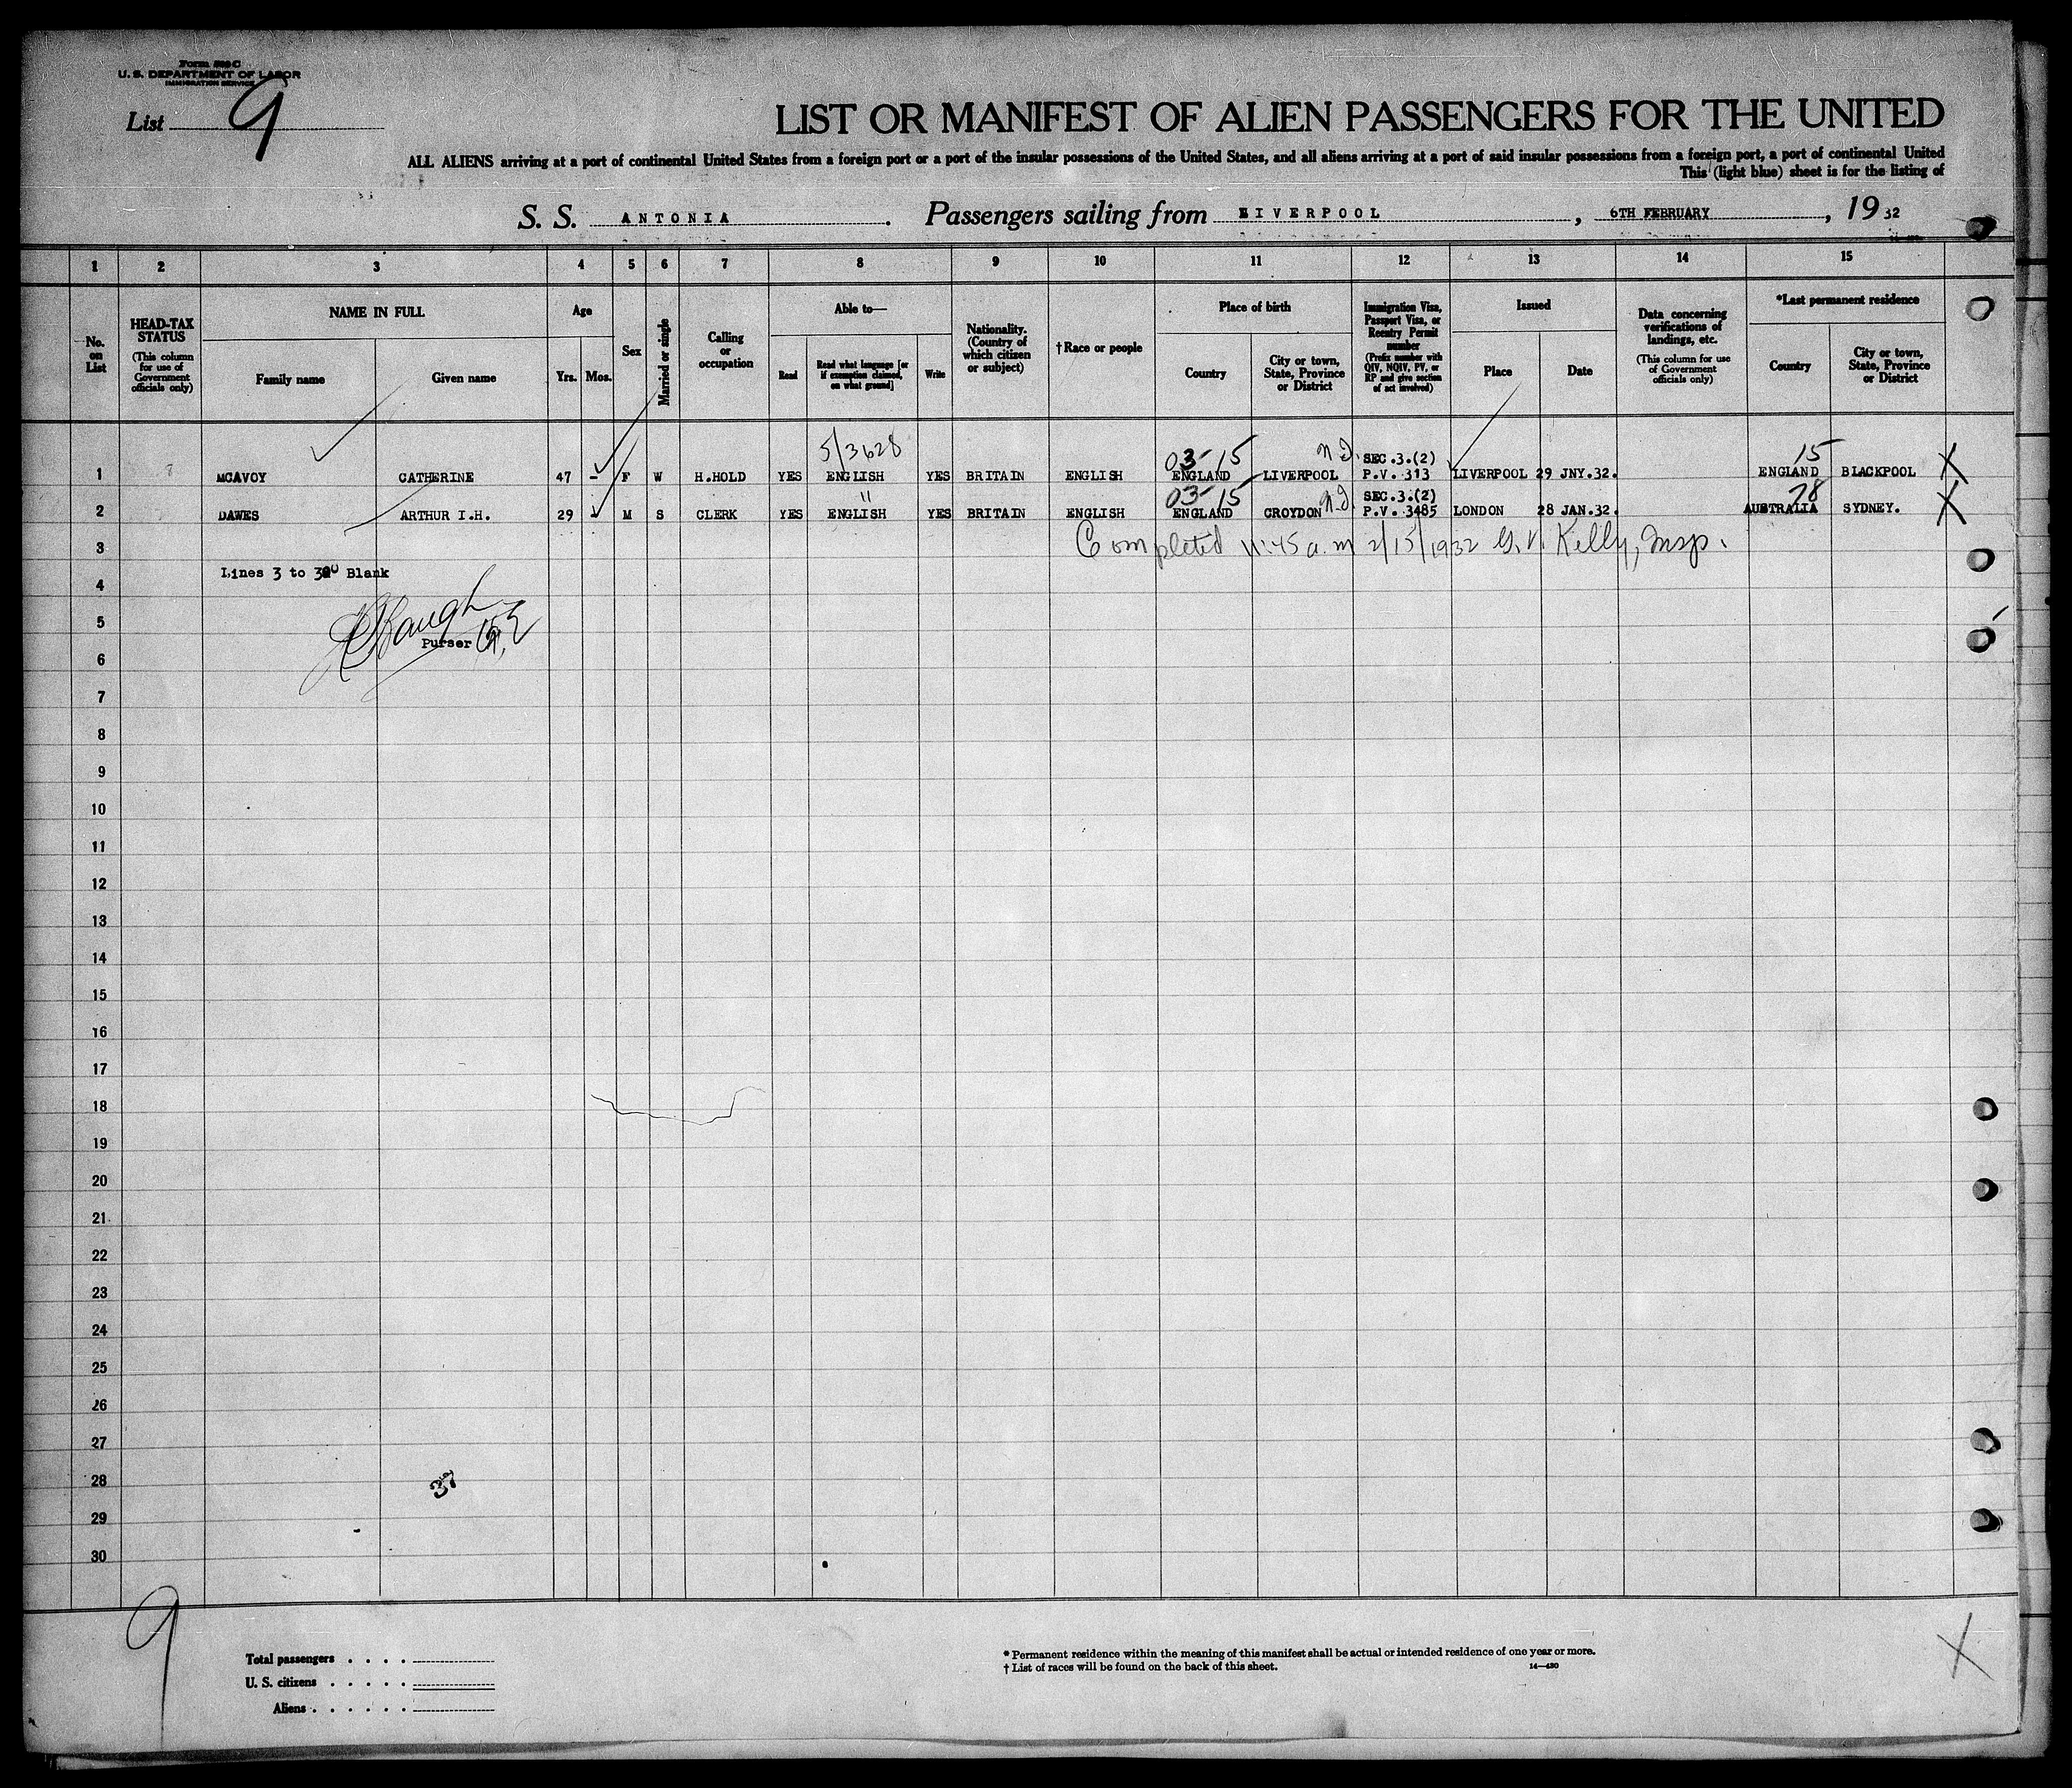 Form 500 C
U. S. DEPARTMENT OF LABOR
IMMIGRATION SERVICE
List 9
LIST OR MANIFEST OF ALIEN PASSENGERS FOR THE UNITED
ALL ALIENS arriving at a port of continental United States from a foreign port or a port of the insular possessions of the United States, and all aliens arriving at a port of said insular possessions from a foreign port, a port of continental United
This (light blue) sheet is for the listing of
S. S. ANTONIA. Passengers sailing from LIVERPOOL, 6TH FEBRUARY, 19 32
1 2 3 4 5 6 7 8 9 10 11 12 13 14 15
No. on List
HEAD-TAX STATUS (This column for use of Government officials only)
NAME IN FULL
Family name Given name
Age
Yrs. Mos.
Sex
Married or single
Calling or occupation
Able to—
Read
Read what language [or if exemption claimed, on what ground]
Write
Nationality. (Country of which citizen or subject)
†Race or people
Place of birth
Country
City or town, State, Province or District
Immigration Visa, Passport Visa, or Reentry Permit number (Prefix number with QIV, NQIV, PV, or RP and give section of act involved)
Issued
Place Date
Data concerning verifications of landings, etc. (This column for use of Government officials only)
*Last permanent residence
Country
City or town, State, Province or District
5/3628 03-15 SEC.3.(2) 15
1 MCAVOY CATHERINE 47 - F W H.HOLD YES ENGLISH YES BRITAIN ENGLISH ENGLAND LIVERPOOL P.V. 313 LIVERPOOL 29 JNY.32. ENGLAND BLACKPOOL X
" 03-15 SEC.3.(2) 28
2 DAWES ARTHUR I.H. 29 M S CLERK YES ENGLISH YES BRITAIN ENGLISH ENGLAND CROYDON P.V. 3485 LONDON 28 JAN.32. AUSTRALIA SYDNEY. X
3 Completed 11:45 a.m 2/15/1932 G. V. Kelly, Insp.
Lines 3 to 30 Blank
4
5
Purser
6
7
8
9
10
11
12
13
14
15
16
17
18
19
20
21
22
23
24
25
26
27
28 37
29
30
9
X
Total passengers . . . .
U. S. citizens . . . . .
Aliens . . . . . .
* Permanent residence within the meaning of this manifest shall be actual or intended residence of one year or more.
† List of races will be found on the back of this sheet. 14—430